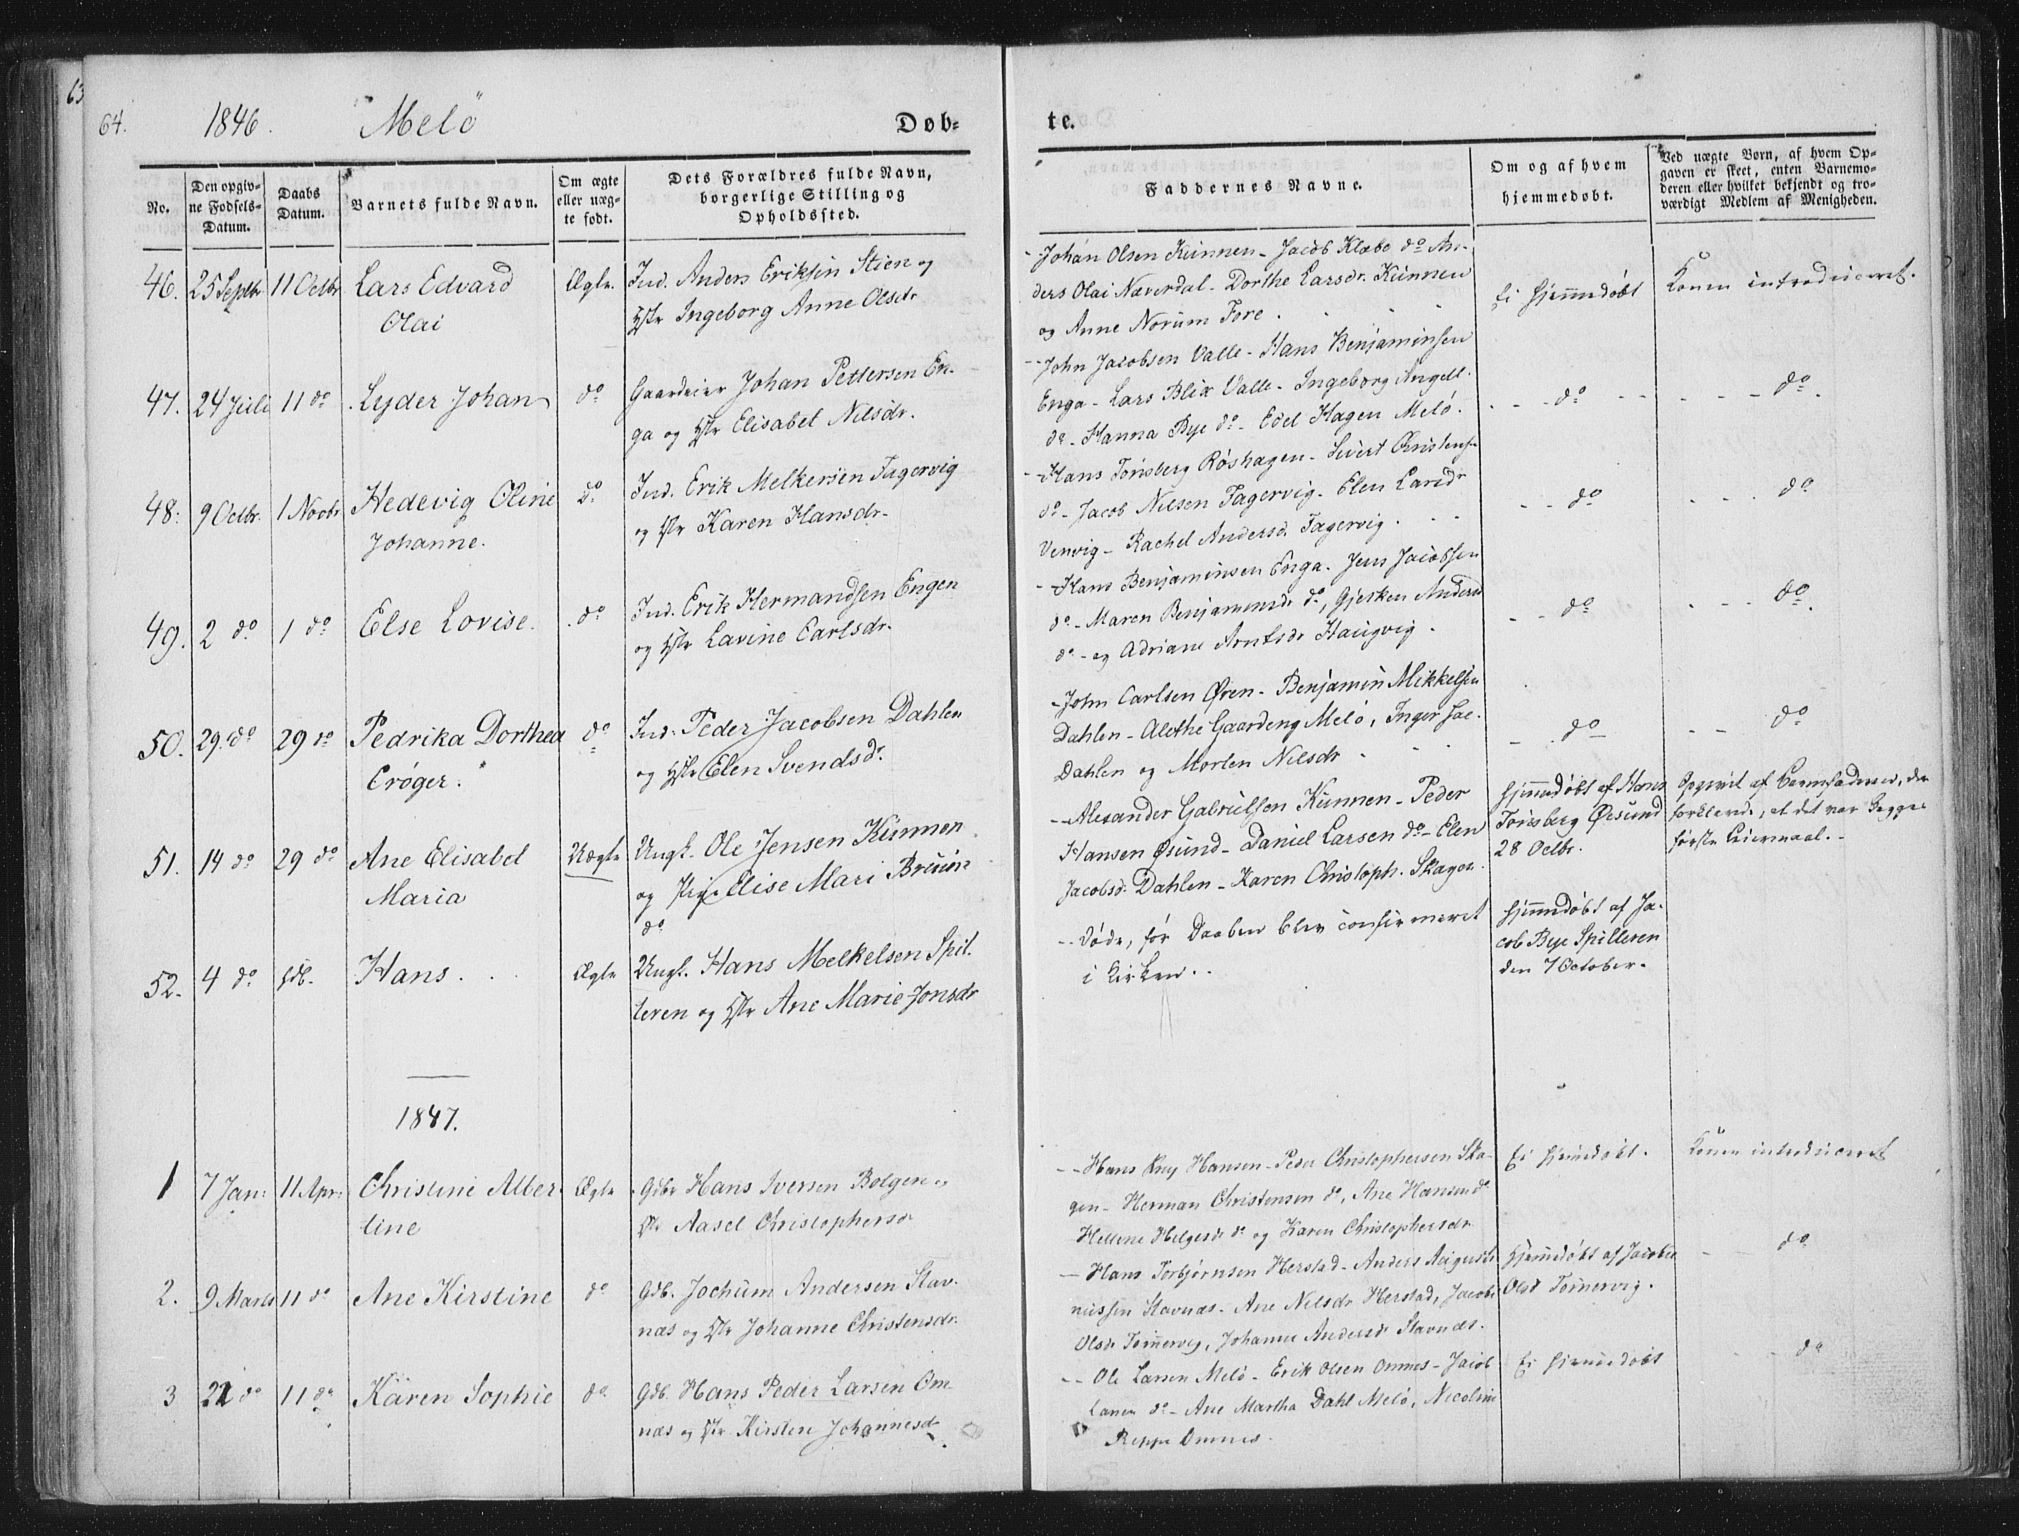 63
64.
1846.
Melö
Døb-
te.
No.
Den opgiv-
ne Fødsels-
Datum.
Daabs
Datum.
Barnets fulde Navn.
Om ægte
eller uæg-
te født.
Dets Forældres fulde Navn,
borgerlige Stilling og
Opholdssted.
Faddernes Navne.
Om og af hvem
hjemmedøbt.
Ved uægte Børn, af hvem Op-
gaven er skeet, enten Barnemo-
deren eller hvilket bekjendt og tro-
værdigt Medlem af Menigheden.
46. 25 Septbr 11 Octbr Lars Edvard
Olai
Ægte.
Ind. Anders Eriksen Stien og
Hstr Ingeborg Anne Olsdr
- Johan Olsen Kunnen - Jacob Klæbo do An-
ders Olai Næverdal - Dorthe Larsdr. Kunnen
og Anne Norum Fore.
Ei hjemmedöbt
Konen introduceret.
47. 24 Juli 11 do Lyder Johan
do
Gaardeier Johan Pettersen En-
ga og Hstr Elisabet Nilsdr.
- John Jacobsen Valle - Hans Benjaminsen
Enga - Lars Blix Valle - Ingeborg Angell
do - Hanna Bye do - Edel Hagen Melö.
do
do
48. 9 Octbr. 1 Novbr Hedevig Oline
Johanne.
do
Ind. Erik Melkersen Fagervig
og Hstr Karen Hansdr.
- Hans Tönsberg Röshagen - Sivert Christens.
do - Jacob Nilsen Fagervig - Elen Larsdr
Venvig - Rachel Andersd. Fagervig.
do
do
49. 2 do 1 do Else Lovise.
do
Ind. Erik Hermandsen Engen
og Hstr Lavine Carlsdr.
- Hans Benjaminsen Enga. Jens Jacobsen
do - Maren Benjaminsd do, Gjertken Andersd
do - og Adriane Arntsdr Haugvig.
do
do
50. 29. do 29 do Pedrika Dorthea
Cröger.
do
Ind. Peder Jacobsen Dahlen
og Hstr Elen Svendsd.
- John Carlsen Øren - Benjamin Mikkelsen
Dahlen - Alethe Gaardeng Melö, Inger Jac.
Dahlen og Morten Nilsdr
do
do
51. 14 do 29 do Ane Elisabet
Maria
Uægte
Ungk. Ole Jensen Kunnen
og Pig. Elise Mari Bruun
do
- Alexander Gabrielsen Kunnen - Peder
Hansen Øsund - Daniel Larsen do - Elen
Jacobsd. Dahlen - Karen Christoph. Skagen.
Hjemmedöbt af Hans
Tönsberg Øesund
28 Octbr.
Opgivet af Barnefaderen, der
forklarede, at det var begges
første Leiermaal.
52. 4 do Hdb. Hans.
Ægte
Ungk. Hans Melkelsen Spil-
leren og Hstr Ane Marie Jonsdr
- Döde, før Daaben blev confirmeret
i Kirken.
Hjemmedöbt af Ja-
cob Bye Spilleren
den 7 October.
1847.
1 7 Jan: 11 Apr: Christine Alber
tine
Ægte
Gdbr Hans Iversen Bolgen og
Hstr Aasel Christophersdr
- Hans Kny Hansen - Peder Christophersen Ska-
gen - Herman Christensen do, Ane Hansend
Hellene Helgesdr do og Karen Christophersdr
Ei hjemmedöbt.
Konen introduceret
2. 9 Marts 11 do Ane Kirstine
do
Gdb. Jochum Andersen Stav-
næs og Hstr Johanne Christensdr.
- Hans Torbjörnsen Herstad - Anders August
niussen Stavnæs - Ane Nilsdr Herstad, Jacobe
Olsdr Tönnervig, Johanne Andersdr Stavnæs.
Hjemmedöbt af Jacobe
Olsd Tönnervig.
do
3 22 do 11 do Karen Sophie
do
Gdb. Hans Peder Larsen Om
næs og Hstr Kirsten Johannesd.
- Ole Larsen Melö - Erik Olsen Omnes - Jacob
Larsen do - Ane Martha Dahl Melö, Nicoline
Reppe Omnes.
Ei hjemmedöbt
do